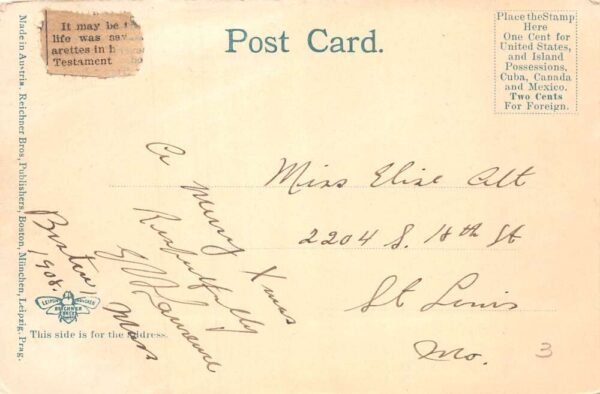 It may be t
life was sav
arettes in h
Testament
Post Card.
Place the Stamp
Here
One Cent for
United States,
and Island
Possessions,
Cuba, Canada
and Mexico.
Two Cents
For Foreign.
Made in Austria. Reichner Bros, Publishers, Boston, München, Leipzig, Prag.
A Merry Xmas
Respectfully
Lawrence
Boston, Mass
1908.
Miss Elise Alt
2204 S. 18th St
St Louis
Mo.
3
REICHNER
BROS
This side is for the address.